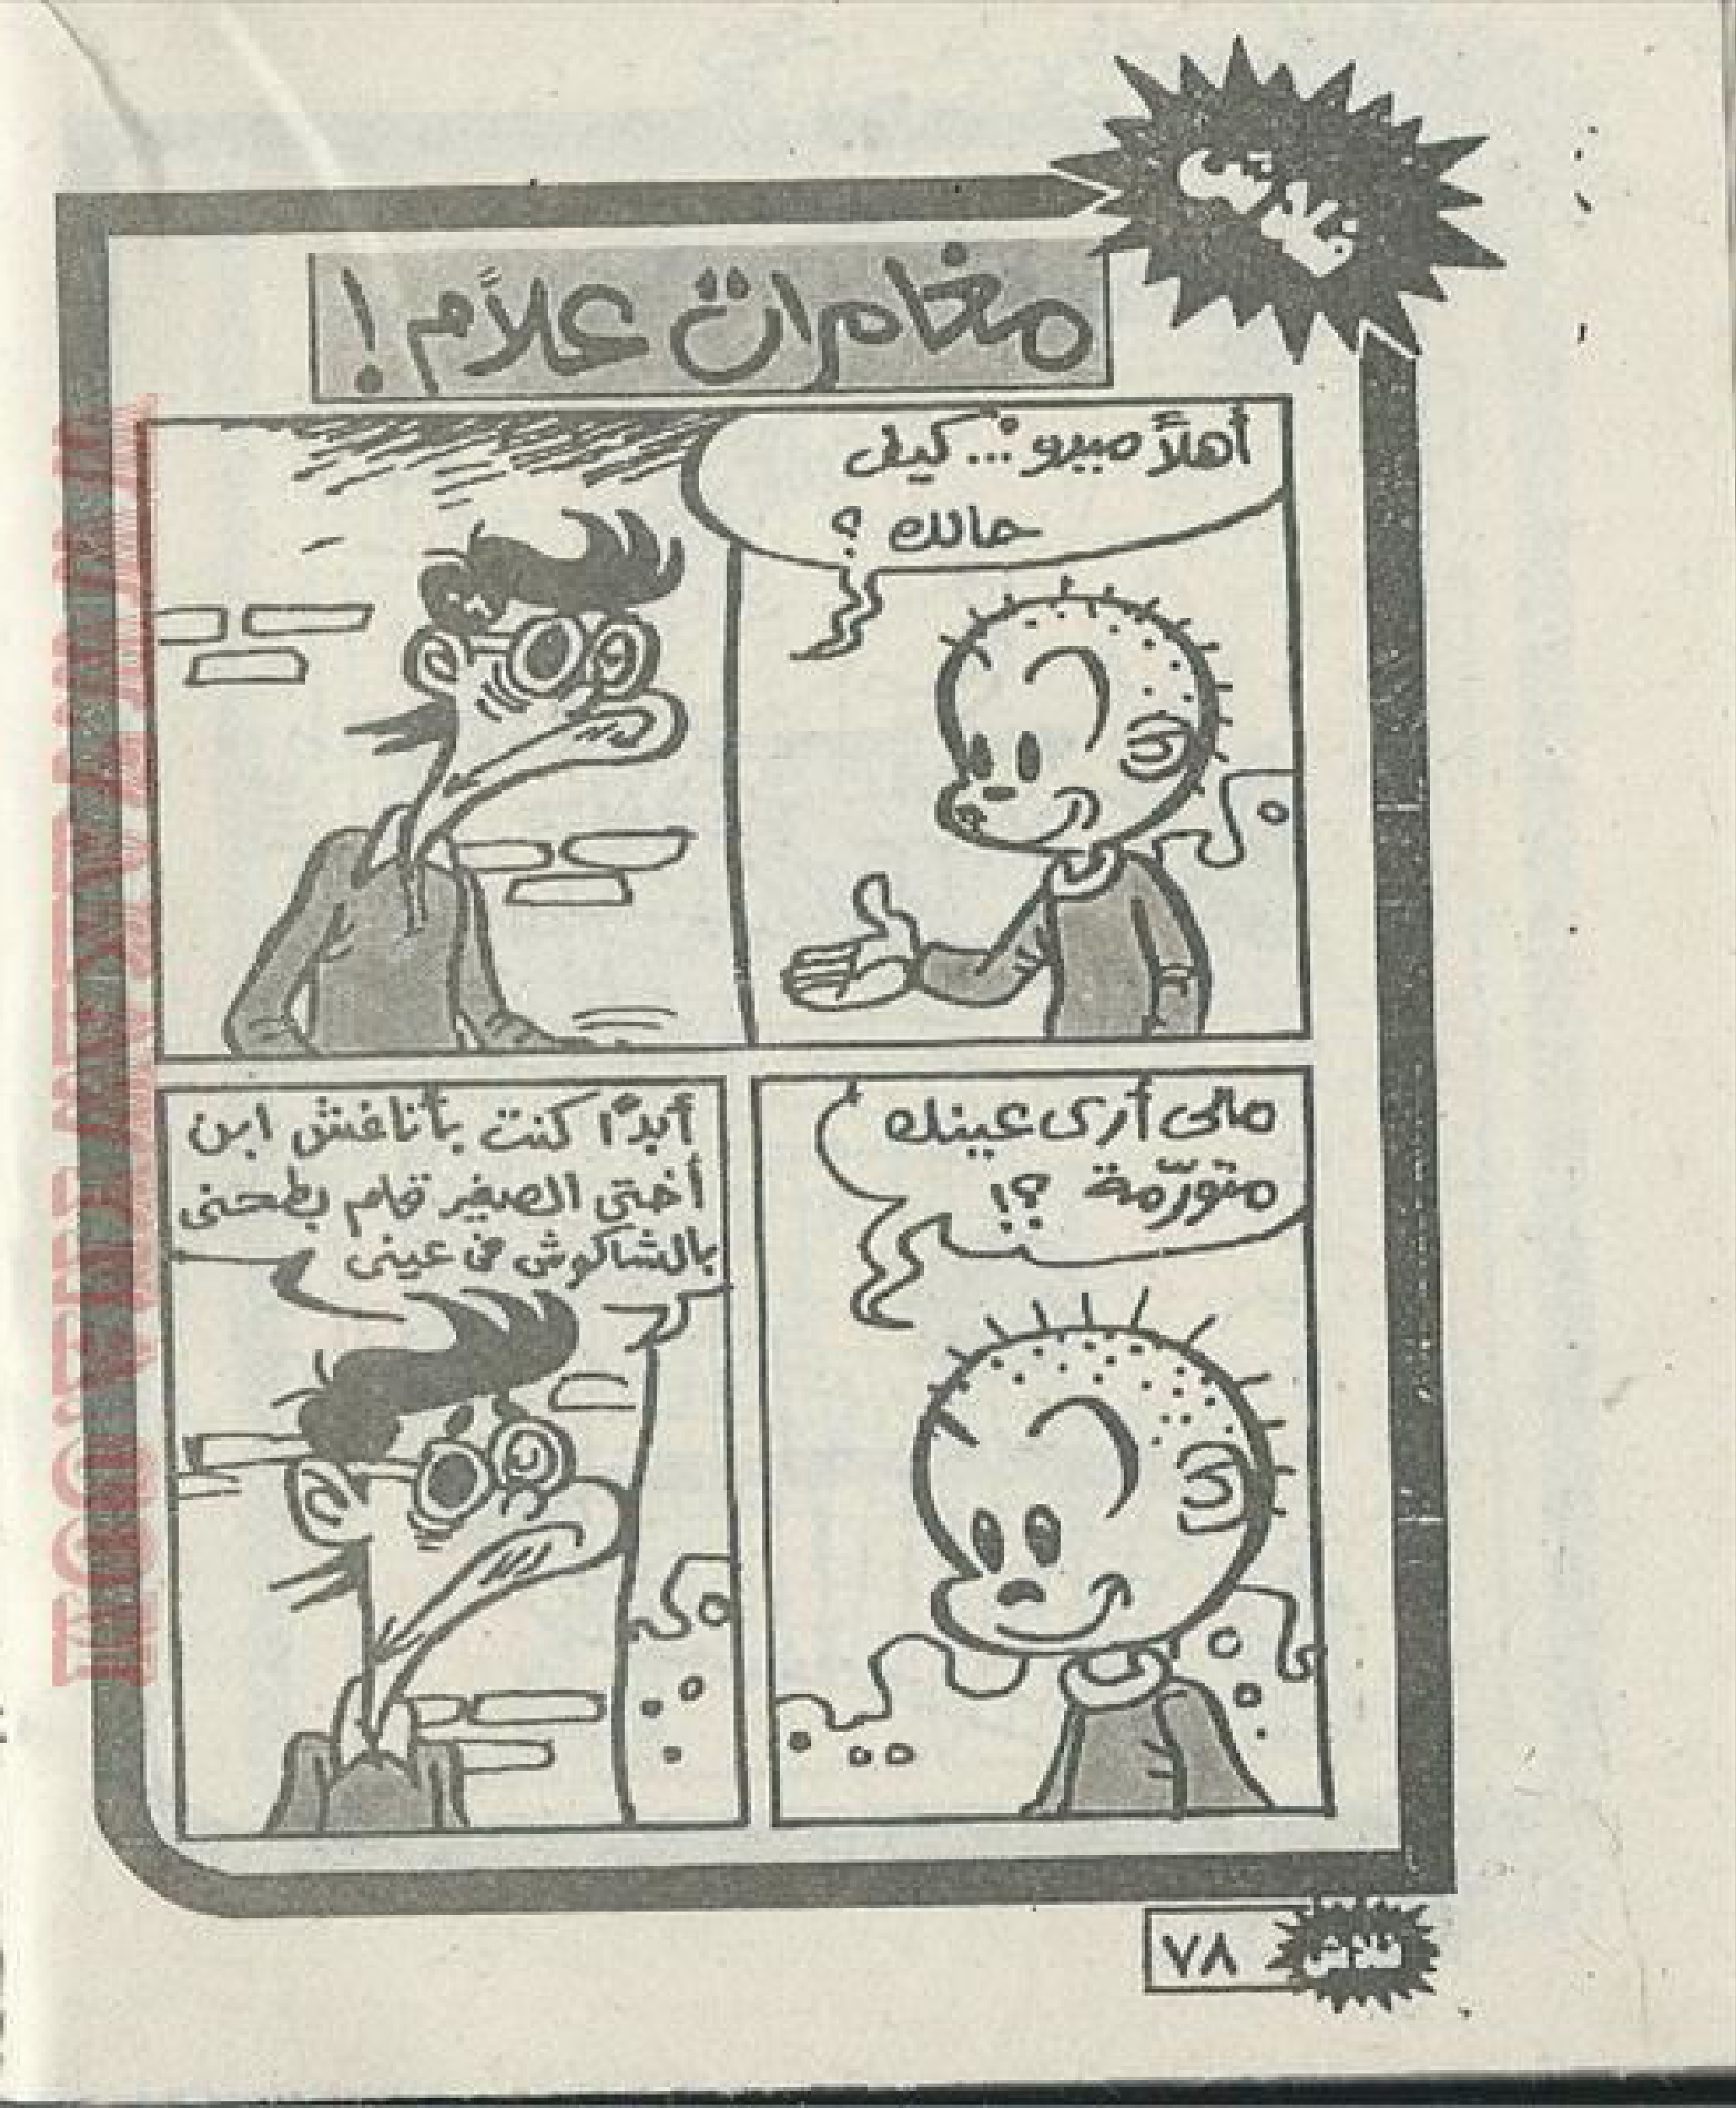 فلاش
مغامرات علاّم !
أهلاً ميدو ... كيف
حالك ؟
مالى أرى عينك
متورّمة ؟!
أبدًا كنت بأناغش ابن
أختى الصغير قام بطحنى
بالشاكوش فى عينى
فلاش
٧٨